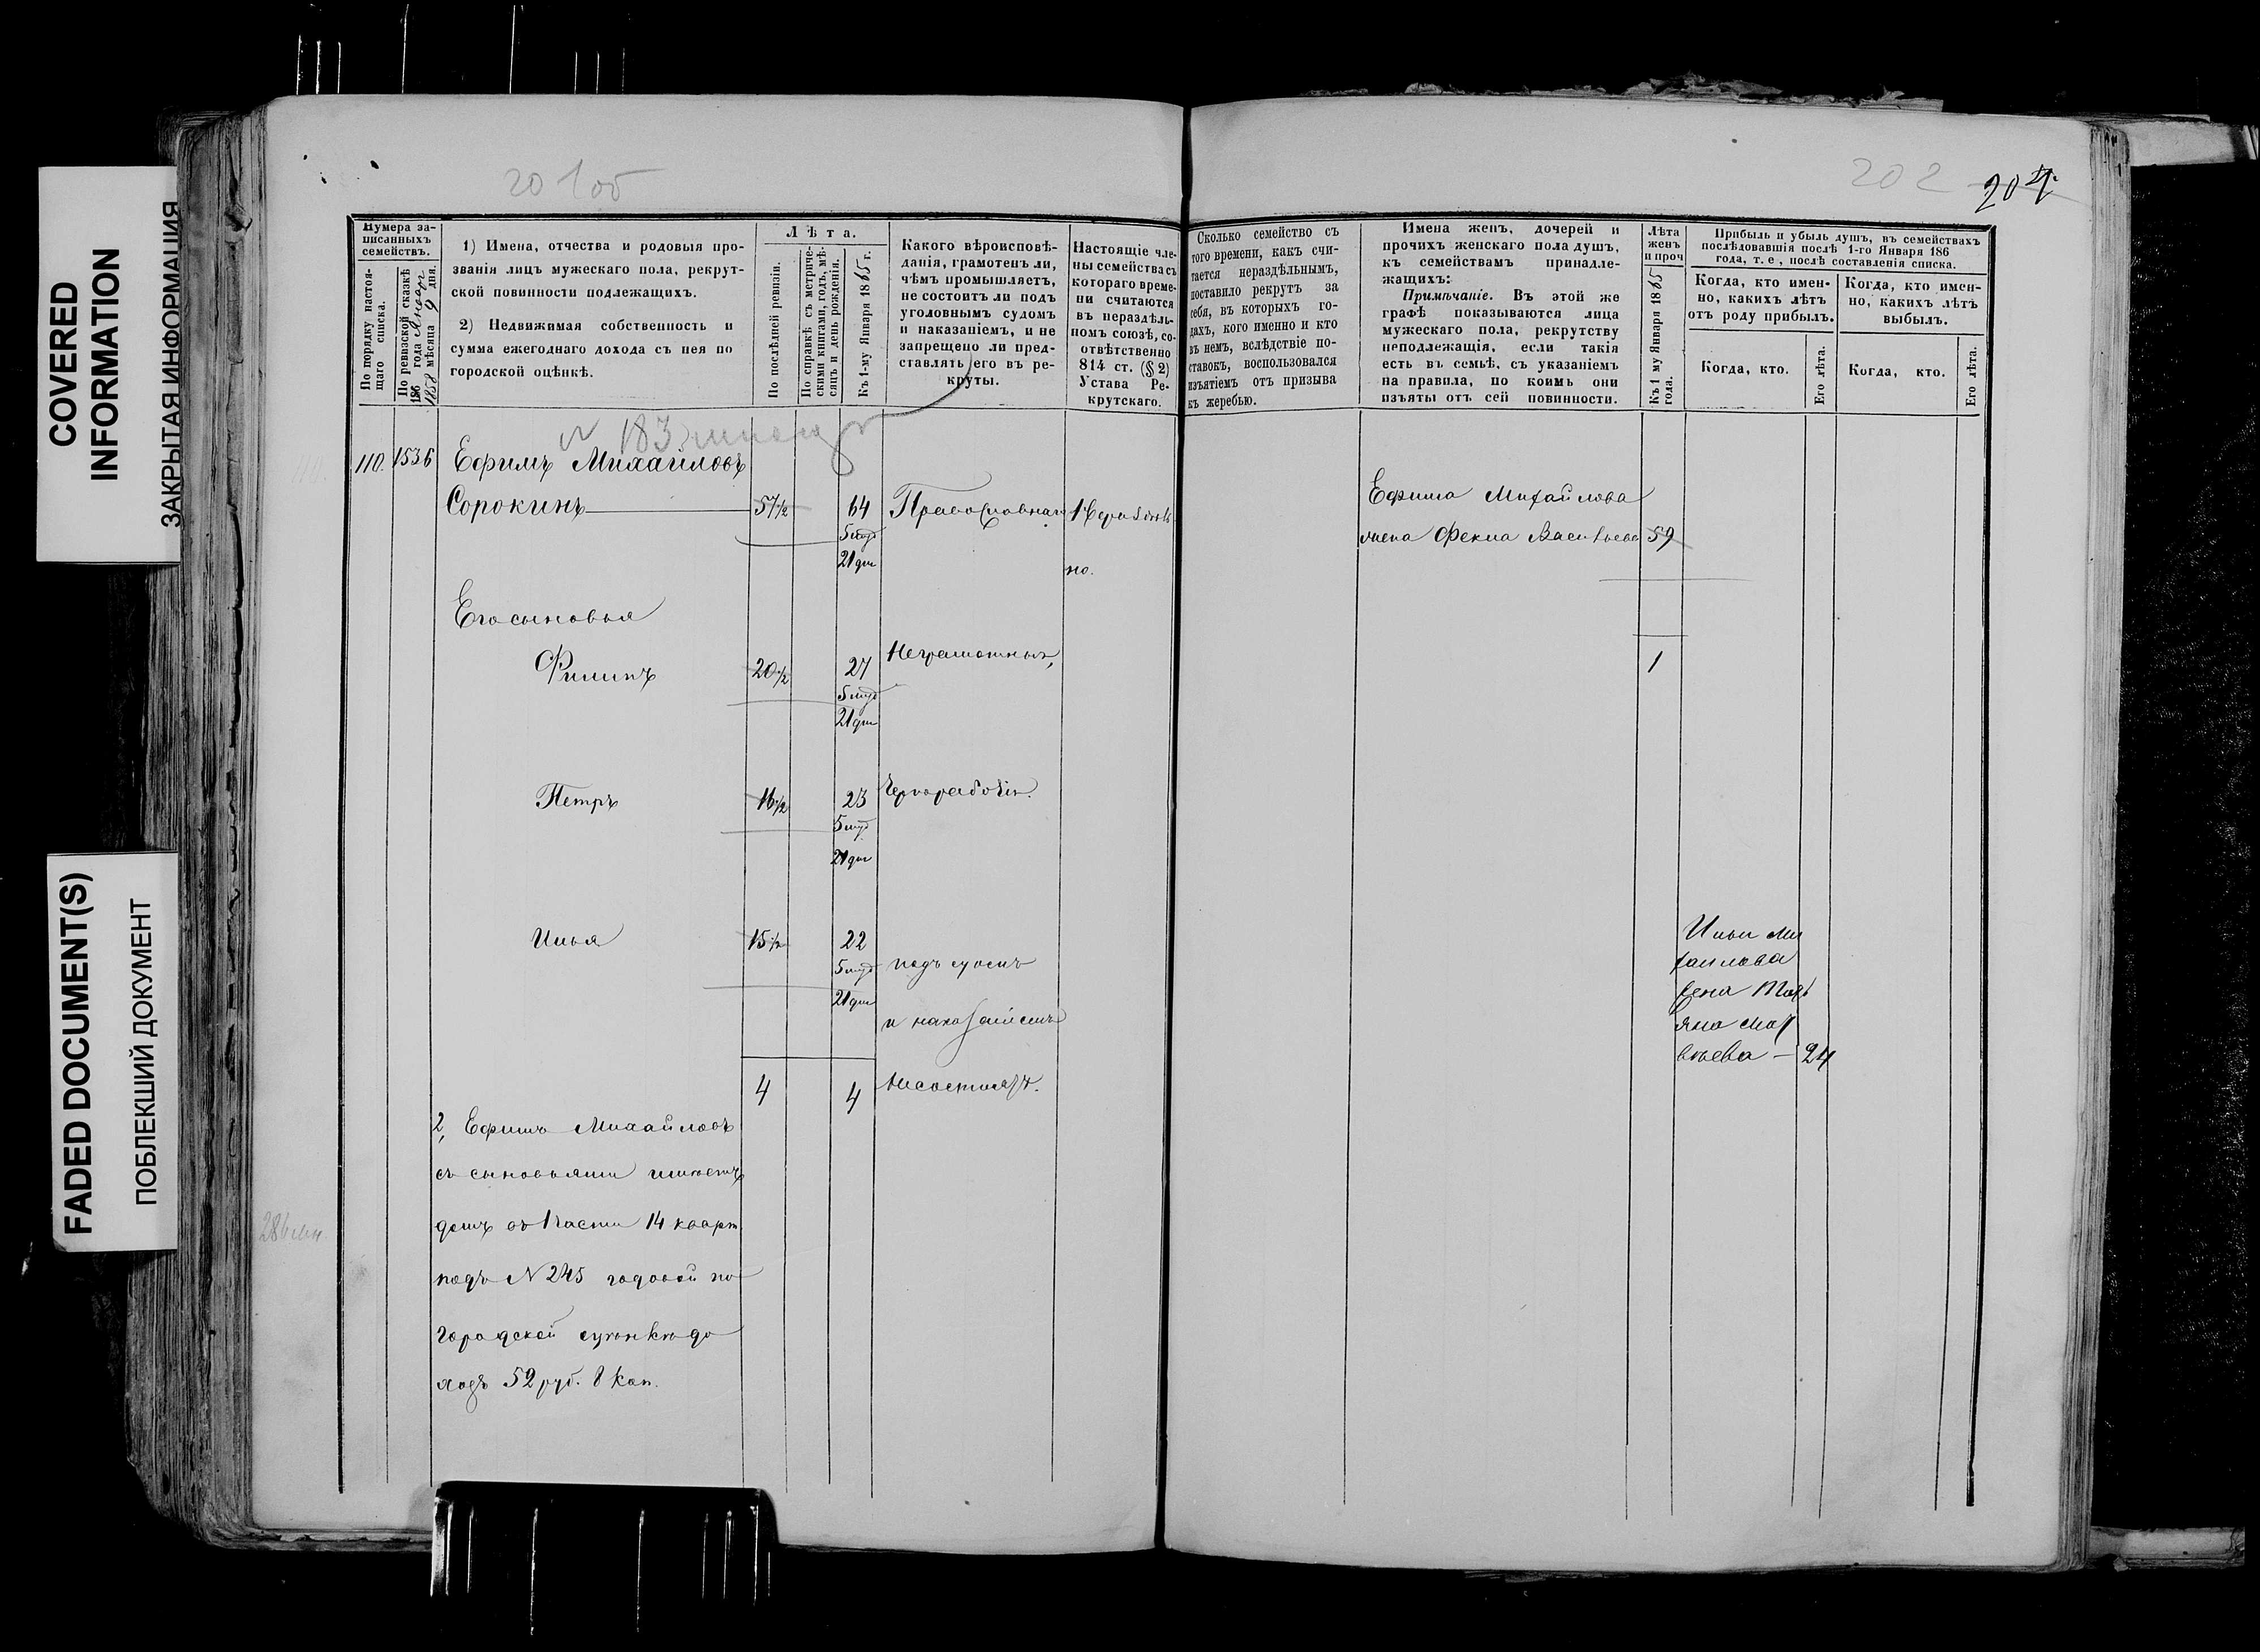 COVERED
INFORMATION
ЗАКРЫТАЯ ИНФОРМАЦИЯ
FADED DOCUMENT(S)
ПОБЛЕКШИЙ ДОКУМЕНТ
201об
202
204
Нумера за-
писанныхъ
семействъ.
По порядку настоя-
щаго списка.
По ревизской сказкѣ
186 года Января
1858 мѣсяца 9 дня.
1) Имена, отчества и родовыя про-
званія лицъ мужескаго пола, рекрут-
ской повинности подлежащихъ.
2) Недвижимая собственность и
сумма ежегоднаго дохода съ нея по
городской оцѣнкѣ.
Лѣта.
По послѣдней ревизіи.
По справкѣ съ метриче-
скими книгами, годъ, мѣ-
сяцъ и день рожденія.
Къ 1-му Января 1865 г.
Какого вѣроисповѣ-
данія, грамотенъ ли,
чѣмъ промышляетъ,
не состоитъ ли подъ
уголовнымъ судомъ
и наказаніемъ, и не
запрещено ли пред-
ставлять его въ ре-
круты.
Настоящіе чле-
ны семейства съ
котораго време-
ни считаются
въ нераздѣль-
номъ союзѣ, со-
отвѣтственно
814 ст. (§ 2)
Устава Ре-
крутскаго.
Сколько семейство съ
того времени, какъ счи-
тается нераздѣльнымъ,
поставило рекрутъ за
себя, въ которыхъ го-
дахъ, кого именно и кто
въ немъ, вслѣдствіе по-
ставокъ, воспользовался
изъятіемъ отъ призыва
къ жеребью.
Имена женъ, дочерей и
прочихъ женскаго пола душъ,
къ семействамъ принадле-
жащихъ:
Примѣчаніе. Въ этой же
графѣ показываются лица
мужескаго пола, рекрутству
неподлежащія, если такія
есть въ семьѣ, съ указаніемъ
на правила, по коимъ они
изъяты отъ сей повинности.
Лѣта
женъ
и проч
Къ 1 му Января 1865
года.
Прибыль и убыль душъ, въ семействахъ
послѣдовавшія послѣ 1-го Января 186
года, т. е., послѣ составленія списка.
Когда, кто имен-
но, какихъ лѣтъ
отъ роду прибылъ.
Когда, кто имен-
но, какихъ лѣтъ
выбылъ.
Когда, кто.
Его лѣта.
Когда, кто.
Его лѣта.
N 183
110. 1536 Ефимъ Михайловъ
Сорокинъ 57½ 64 Православнаго
5 мѣс
21 дня
но.
Ефима Михайлова
жена Фекла Васильева 59
Его сыновья
Филипъ 20½ 27 Неграмотны,
5 мѣс
21 дня
1
Петръ 16½ 23 Чернорабочіе.
5 мѣс
21 дня
Илья 15½ 22
5 мѣс подъ судомъ
21 дня
и наказаніемъ
4 4 несостоятъ.
Ильи Ми
хайлова
жена Тать
яна Мат
вѣева — 24
2, Ефимъ Михайловъ
съ сыновьями имѣетъ
домъ въ 1 части 14 кварт
подъ N 245 годовой по
городской оцѣнкѣ до
ходъ 52 руб. 8 коп.